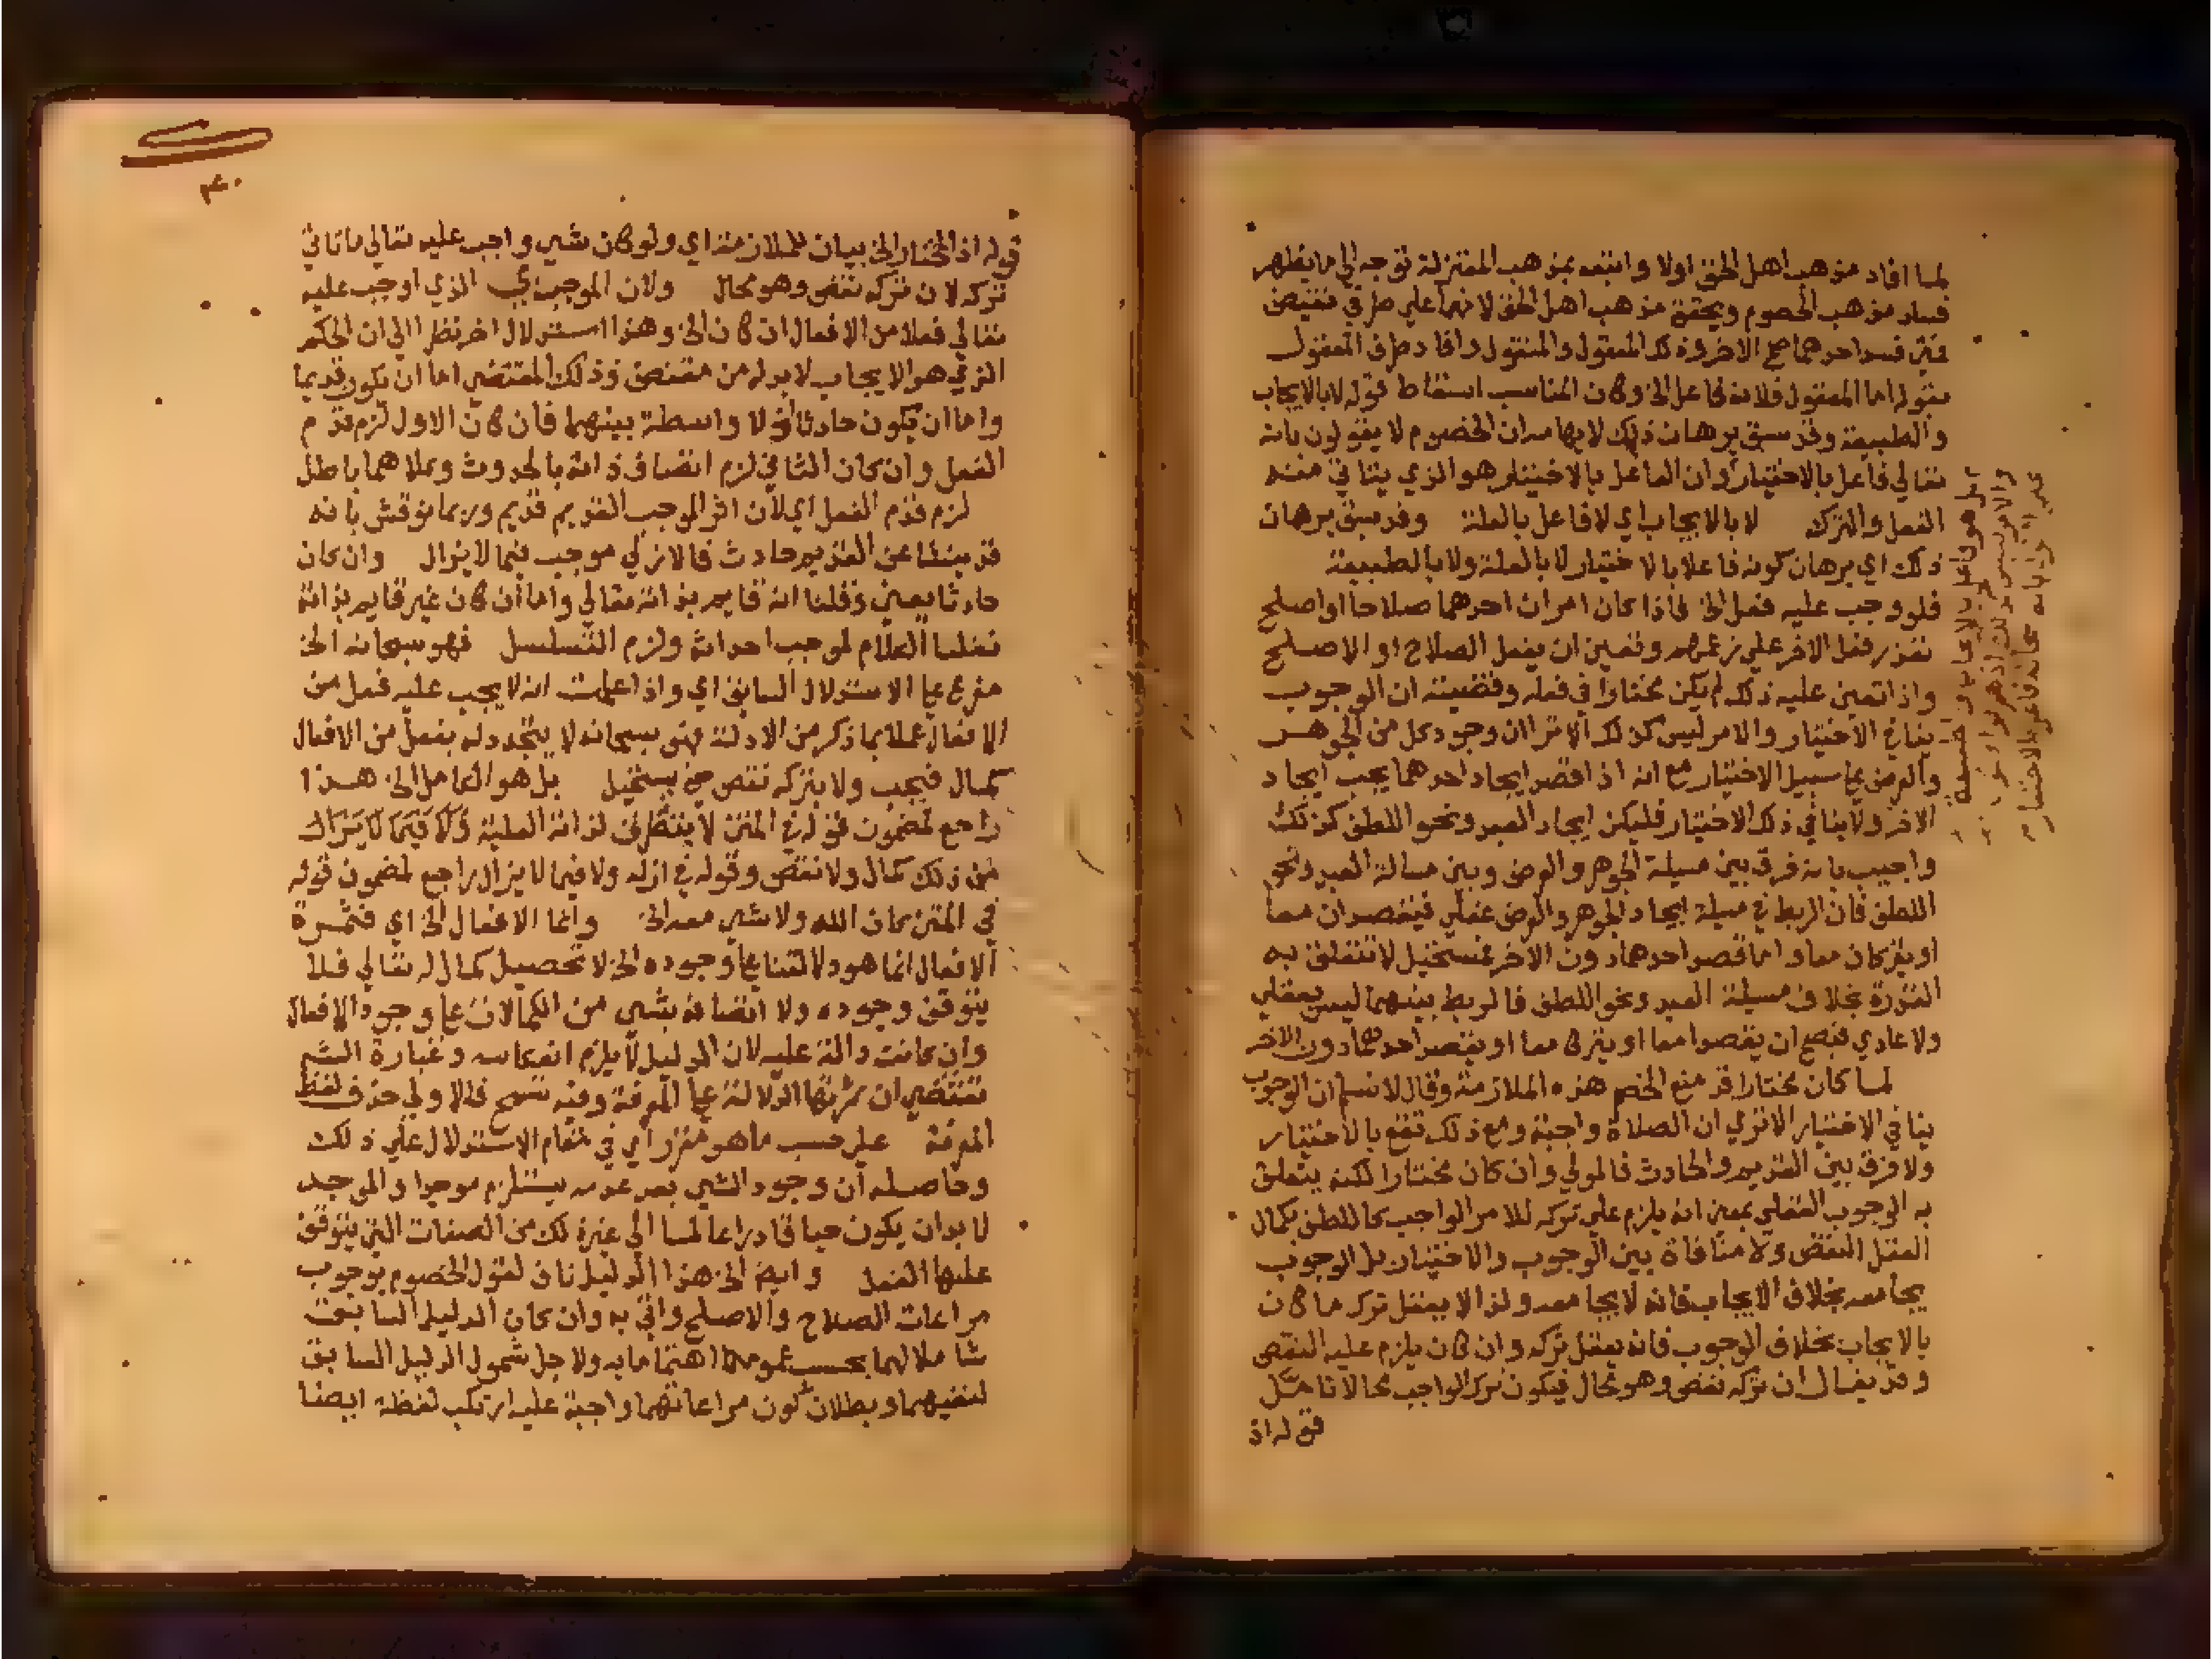 لما افاد مذهب اهل الحق اولا واتبعه بمذهب المعتزلة توجه الي ما يظهر
فساد مذهب الخصوم ويحقق مذهب اهل الحق لانهما علي طرفي نقيض
فمتي فسد احدهما صح الاخر وذكر المعقول والمنقول وافاد طرف المعقول
بقوله اما المعقول فلانه فاعل الخ وكان المناسب اسقاط قوله لا بالايجاب
والطبيعة وقد سبق برهان ذلك لايهامه ان الخصوم لا يقولون بانه
تعالي فاعل بالاختيار وان الفاعل بالاختيار هو الذي يتاتي منه
الفعل والترك لا بالايجاب اي لا فاعل بالعلة وقد سبق برهان
ذلك اي برهان كونه فاعلا بالاختيار لا بالعلة ولا بالطبيعة
فلو وجب عليه فعل الخ فاذا كان امران احدهما صلاحا او اصلح
تعذر فعل الاخر علي زعمهم وتعين ان يفعل الصلاح او الاصلح
واذا تعين عليه ذلك لم يكن مختارا في فعله وقضيته ان الوجوب
ينافي الاختيار والامر ليس كذلك الا تري ان وجود كل من الجوهر
والعرض علي سبيل الاختيار مع انه اذا قصد ايجاد احدهما يجب ايجاد
الاخر ولا ينافي ذلك الاختيار فليكن ايجاد العبد ونحو اللطف كذلك
واجيب بانه فرق بين مسيلة الجوهر والعرض وبين مسالة العبد ونحو
اللطف فان الربط في مسيلة ايجاد الجوهر والعرض عقلي فيقصدان معا
او يتركان معا واما قصد احدهما دون الاخر فمستحيل لا تتعلق به
القدرة بخلاف مسيلة العبد ونحو اللطف فالربط بينهما ليس بعقلي
ولا عادي فيصح ان يقصدا معا او يتركا معا او يقصد احدهما دون الاخر
لما كان مختارا قد منع الخصم هذه الملازمة وقال لا نسلم ان الوجوب
ينافي الاختيار الا تري ان الصلاة واجبة ومع ذلك تقع بالاختيار
ولا فرق بين القديم والحادث فالمولي وان كان مختارا لكنه يتعلق
به الوجوب العقلي بمعني انه يلزم علي تركه للامر الواجب كاللطف بكمال
العقل النقص ولا منافاة بين الوجوب والاختيار بل الوجوب
يجامعه بخلاف الايجاب فانه لا يجامعه ولذا لا يعقل ترك ما كان
بالايجاب بخلاف الوجوب فانه يعقل تركه وان كان يلزم عليه النقص
وقد يقال ان تركه نقص وهو محال فيكون ترك الواجب محالا تامل
قوله اذ
٤٠
قوله اذ المختار الخ بيان للملازمة اي ولو كان شي واجب عليه تعالي ما تاتي
تركه لان تركه نقص وهو محال ولان الموجب اي الذي اوجب عليه
تعالي فعلا من الافعال ان كان الخ وهذا استدلال اخر نظرا الي ان الحكم
الذي هو الايجاب لا بد له من مقتض وذلك المقتضي اما ان يكون قديما
واما ان يكون حادثا ولا واسطة بينهما فان كان الاول لزم قدم
الفعل وان كان الثاني لزم اتصاف ذاته بالحدوث وكلاهما باطل
لزم قدم الفعل اي لان اثر الموجب القديم قديم وربما نوقش بانه
قد ينشا عن القديم حادث فالازلي موجب فيما لا يزال وان كان
حادثا يعني وقلنا انه قايم بذاته تعالي واما ان كان غير قايم بذاته
نقلنا الكلام لموجب احداثه ولزم التسلسل فهو سبحانه الخ
مفرع علي الاستدلال السابق اي واذا علمت انه لا يجب عليه فعل من
الافعال عملا بما ذكر من الادلة فهو سبحانه لا يتجدد له بفعل من الافعال
كمال فيجب ولا بتركه نقص حتي يستحيل بل هو الكامل الخ هذا
راجع لمضمون قوله في المتن لا يتطرق لذاته العلية ولا فيما لا يزال
من ذلك كمال ولا نقص وقوله في ازله ولا فيما لا يزال راجع لمضمون قوله
في المتن كان الله ولا شي معه الخ وانما الافعال الخ اي فثمرة
الافعال انما هو دلالتنا علي وجوده الخ لا تحصيل كمال له تعالي فلا
يتوقف وجوده ولا اتصافه بشي من الكمالات علي وجود الافعال
وان كانت دالة عليه لان الدليل لا يلزم انعكاسه وعبارة الش
تقتضي ان ثمرتها الدلالة علي المعرفة وفيه تسمح فالاولي حذف لفظ
المعرفة علي حسب ما هو مقرر اي في مقام الاستدلال علي ذلك
وحاصله ان وجود الشي بعد عدمه يستلزم موجدا والموجد
لا بد ان يكون حيا قادرا عالما الي غير ذلك من الصفات التي يتوقف
عليها الفعل وايضا الخ هذا الدليل ناف لقول الخصوم بوجوب
مراعات الصلاح والاصلح واتي به وان كان الدليل السابق
شاملا لهما بحسب عمومه اهتماما به ولاجل شمول الدليل السابق
لنفيهما وبطلان كون مراعاتهما واجبة عليه ارتكب لفظة ايضا